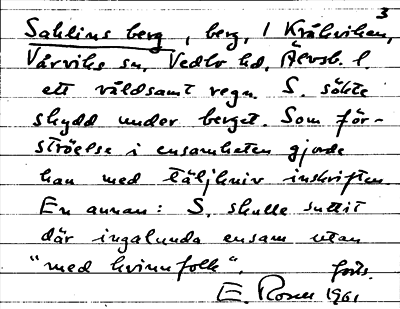 3
Sahlins berg, berg, I Kråkviken,
Vårviks sn, Vedbo hd, Älvsb. l.
ett våldsamt regn. S. sökte
skydd under berget. Som för-
ströelse i ensamheten gjorde
han med täljkniv inskriften.
En annan: S. skulle suttit
där ingalunda ensam utan
"med kvinnfolk". forts.
E. Rosen 1961